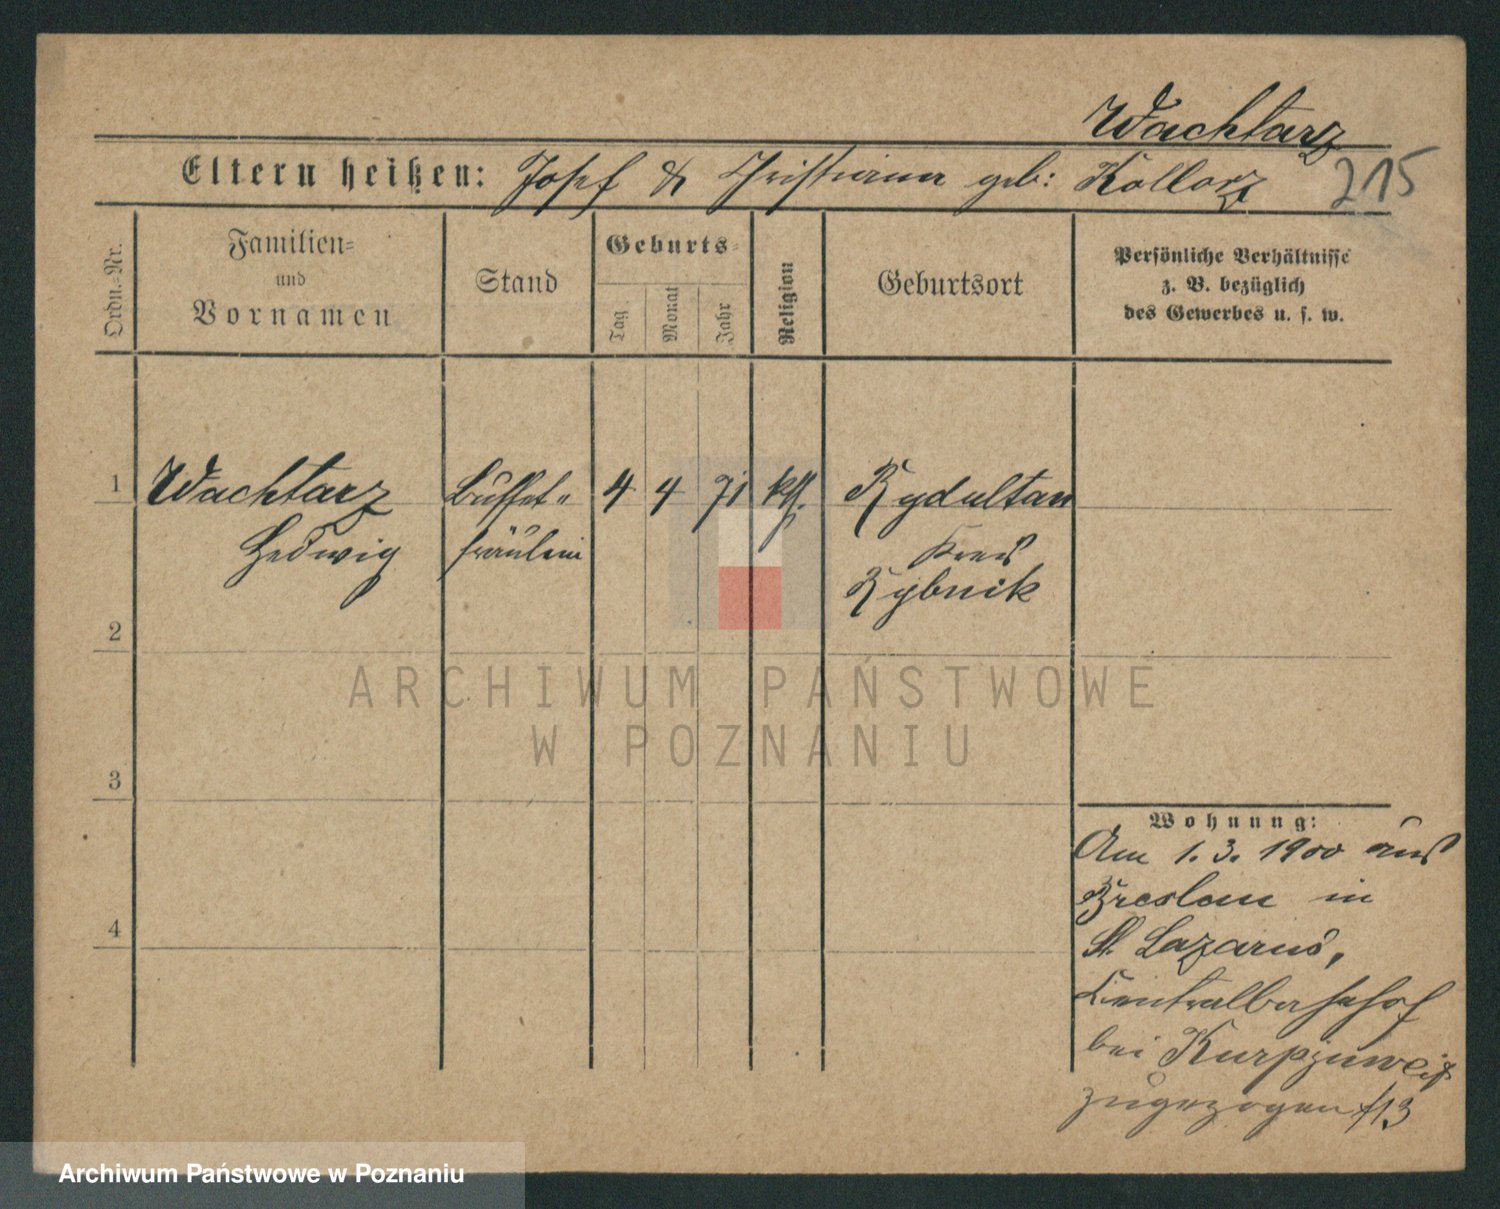 Wachtarz
Eltern heißen: Josef & Christiana geb: Kollorz 215
Ordn.-Nr.
Familien=
und
Vornamen
Stand
Geburts=
Tag.
Monat
Jahr
Religion
Geburtsort
Persönliche Verhältnisse
z. B. bezüglich
des Gewerbes u. s. w.
1 Wachtarz Buffet= 4 4 71 kth. Rydultau
Hedwig fräulein Kreis
Rybnik
2
ARCHIWUM PAŃSTWOWE
W POZNANIU
3
Wohnung:
Am 1. 3. 1900 aus
Breslau in
4
St. Lazarus,
Centralbahnhof
bei
zugezogen
Archiwum Państwowe w Poznaniu